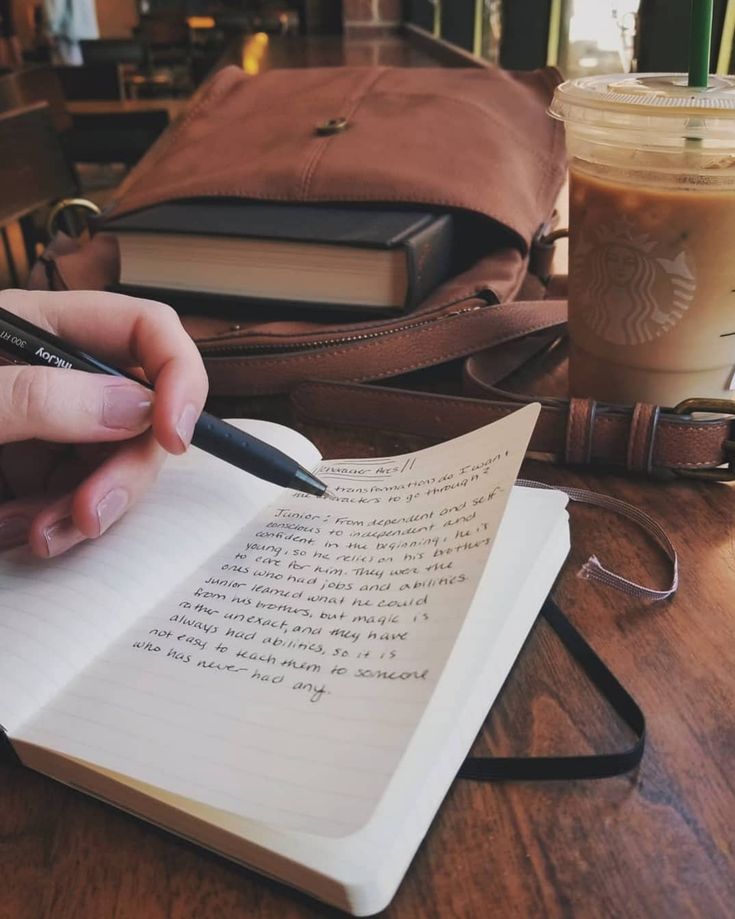 Character Arcs
transformation do I want
the characters to go through?
Junior: From dependent and self-
conscious to independent and
confident. In the beginning, he is
young, so he relies on his brothers
to care for him. They were the
ones who had jobs and abilities.
Junior learned what he could
from his brothers, but magic is
rather unexact, and they have
always had abilities, so it is
not easy to teach them to someone
who has never had any.
InkJoy 300 RT